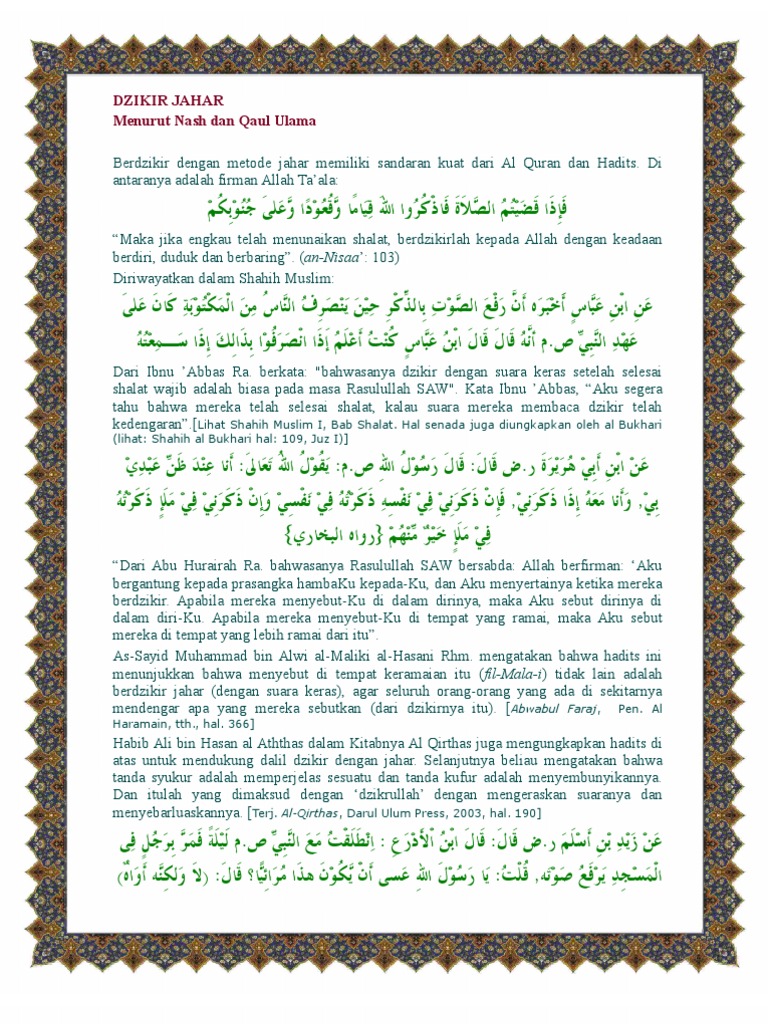 DZIKIR JAHAR
Menurut Nash dan Qaul Ulama
Berdzikir dengan metode jahar memiliki sandaran kuat dari Al Quran dan Hadits. Di
antaranya adalah firman Allah Ta’ala:
فَإِذَا قَضَيْتُمُ الصَّلاَةَ فَاذْكُرُوا اللهَ قِيَامًا وَّقُعُوْدًا وَّعَلىَ جُنُوْبِكُمْ
“Maka jika engkau telah menunaikan shalat, berdzikirlah kepada Allah dengan keadaan
berdiri, duduk dan berbaring”. (an-Nisaa’: 103)
Diriwayatkan dalam Shahih Muslim:
عَنِ ابْنِ عَبَّاسٍ أَخْبَرَه أَنَّ رَفْعَ الصَّوْتِ بِالذِّكْرِ حِيْنَ يَنْصَرِفُ النَّاسُ مِنَ الْمَكْتُوْبَةِ كَانَ عَلىَ
عَهْدِ النَّبِيِّ ص.م أنَّهُ قَالَ قَالَ ابْنُ عَبَّاسٍ كُنْتُ أَعْلَمُ إِذَا انْصَرَفُوْا بِذَالِكَ إِذَا سَـــمِعْتُهُ
Dari Ibnu ’Abbas Ra. berkata: "bahwasanya dzikir dengan suara keras setelah selesai
shalat wajib adalah biasa pada masa Rasulullah SAW". Kata Ibnu ’Abbas, “Aku segera
tahu bahwa mereka telah selesai shalat, kalau suara mereka membaca dzikir telah
kedengaran”.[Lihat Shahih Muslim I, Bab Shalat. Hal senada juga diungkapkan oleh al Bukhari
(lihat: Shahih al Bukhari hal: 109, Juz I)]
عَنْ ابْنِ أَبِيْ هُرَيْرَةَ ر.ض قَالَ: قَالَ رَسُوْلُ اللهِ ص.م: يَقُوْلُ اللهُ تَعَالىَ: أَنا عِنْدَ ظَنِّ عَبْدِيْ
بِيْ, وَأَنا مَعَهُ إِذَا ذَكَرَنِيْ, فَإِنْ ذَكَرَنِيْ فِيْ نَفْسِهِ ذَكَرْتُهُ فِيْ نَفْسِيْ وَإِنْ ذَكَرَنِيْ فِيْ مَلَإٍ ذَكَرْتُهُ
فِيْ مَلَإٍ خَيْرٌ مِّنْهُمْ {رواه البخاري}
“Dari Abu Hurairah Ra. bahwasanya Rasulullah SAW bersabda: Allah berfirman: ‘Aku
bergantung kepada prasangka hambaKu kepada-Ku, dan Aku menyertainya ketika mereka
berdzikir. Apabila mereka menyebut-Ku di dalam dirinya, maka Aku sebut dirinya di
dalam diri-Ku. Apabila mereka menyebut-Ku di tempat yang ramai, maka Aku sebut
mereka di tempat yang lebih ramai dari itu”.
As-Sayid Muhammad bin Alwi al-Maliki al-Hasani Rhm. mengatakan bahwa hadits ini
menunjukkan bahwa menyebut di tempat keramaian itu (fil-Mala-i) tidak lain adalah
berdzikir jahar (dengan suara keras), agar seluruh orang-orang yang ada di sekitarnya
mendengar apa yang mereka sebutkan (dari dzikirnya itu). [Abwabul Faraj, Pen. Al
Haramain, tth., hal. 366]
Habib Ali bin Hasan al Aththas dalam Kitabnya Al Qirthas juga mengungkapkan hadits di
atas untuk mendukung dalil dzikir dengan jahar. Selanjutnya beliau mengatakan bahwa
tanda syukur adalah memperjelas sesuatu dan tanda kufur adalah menyembunyikannya.
Dan itulah yang dimaksud dengan ‘dzikrullah’ dengan mengeraskan suaranya dan
menyebarluaskannya. [Terj. Al-Qirthas, Darul Ulum Press, 2003, hal. 190]
عَنْ زَيْدِ بْنِ أَسْلَمَ ر.ض قَالَ: قَالَ ابْنُ اْلأَدْرَعِ : اِنْطَلَقْتُ مَعَ النَّبِيِّ ص.م لَيْلَةً فَمَرَّ بِرَجُلٍ فِى
الْمَسْجِدِ يَرْفَعُ صَوْتَه, قُلْتُ: يَا رَسُوْلَ اللهِ عَسى أَنْ يَّكُوْنَ هذَا مُرَائِيًّا؟ قَالَ: (لاَ وَلكِنَّه أَوَاهٌ)